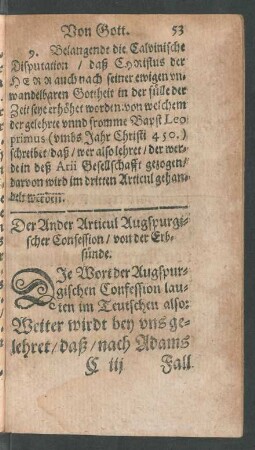 Von Gott. 53
9. Belangende die Calvinische
Disputation / daß CHRistus der
HERR auch nach seiner ewigen vn-
wandelbaren Gottheit in der fülle der
Zeit seye erhöhet worden / von welchem
der gelehrte vnnd fromme Bapst Leo
primus (vmbs Jahr Christi 450.)
schreibet / daß / wer also lehret / der wer-
de in deß Arii Gesellschafft gezogen /
darvon wird im dritten Articul gehan-
delt werden.
Der Ander Articul Augspurgi-
scher Confession / von der Erb-
sünde.
DIe Wort der Augspur-
gischen Confession lau-
ten im Teutschen also:
Weiter wirdt bey vns ge-
lehret / daß / nach Adams
C iij Fall.